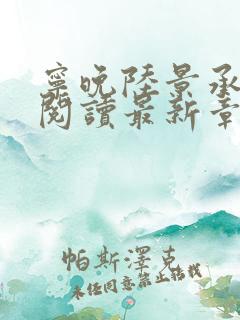 寧晚陸景承
閱讀最新章
帕斯澤克
未经同意禁止转载